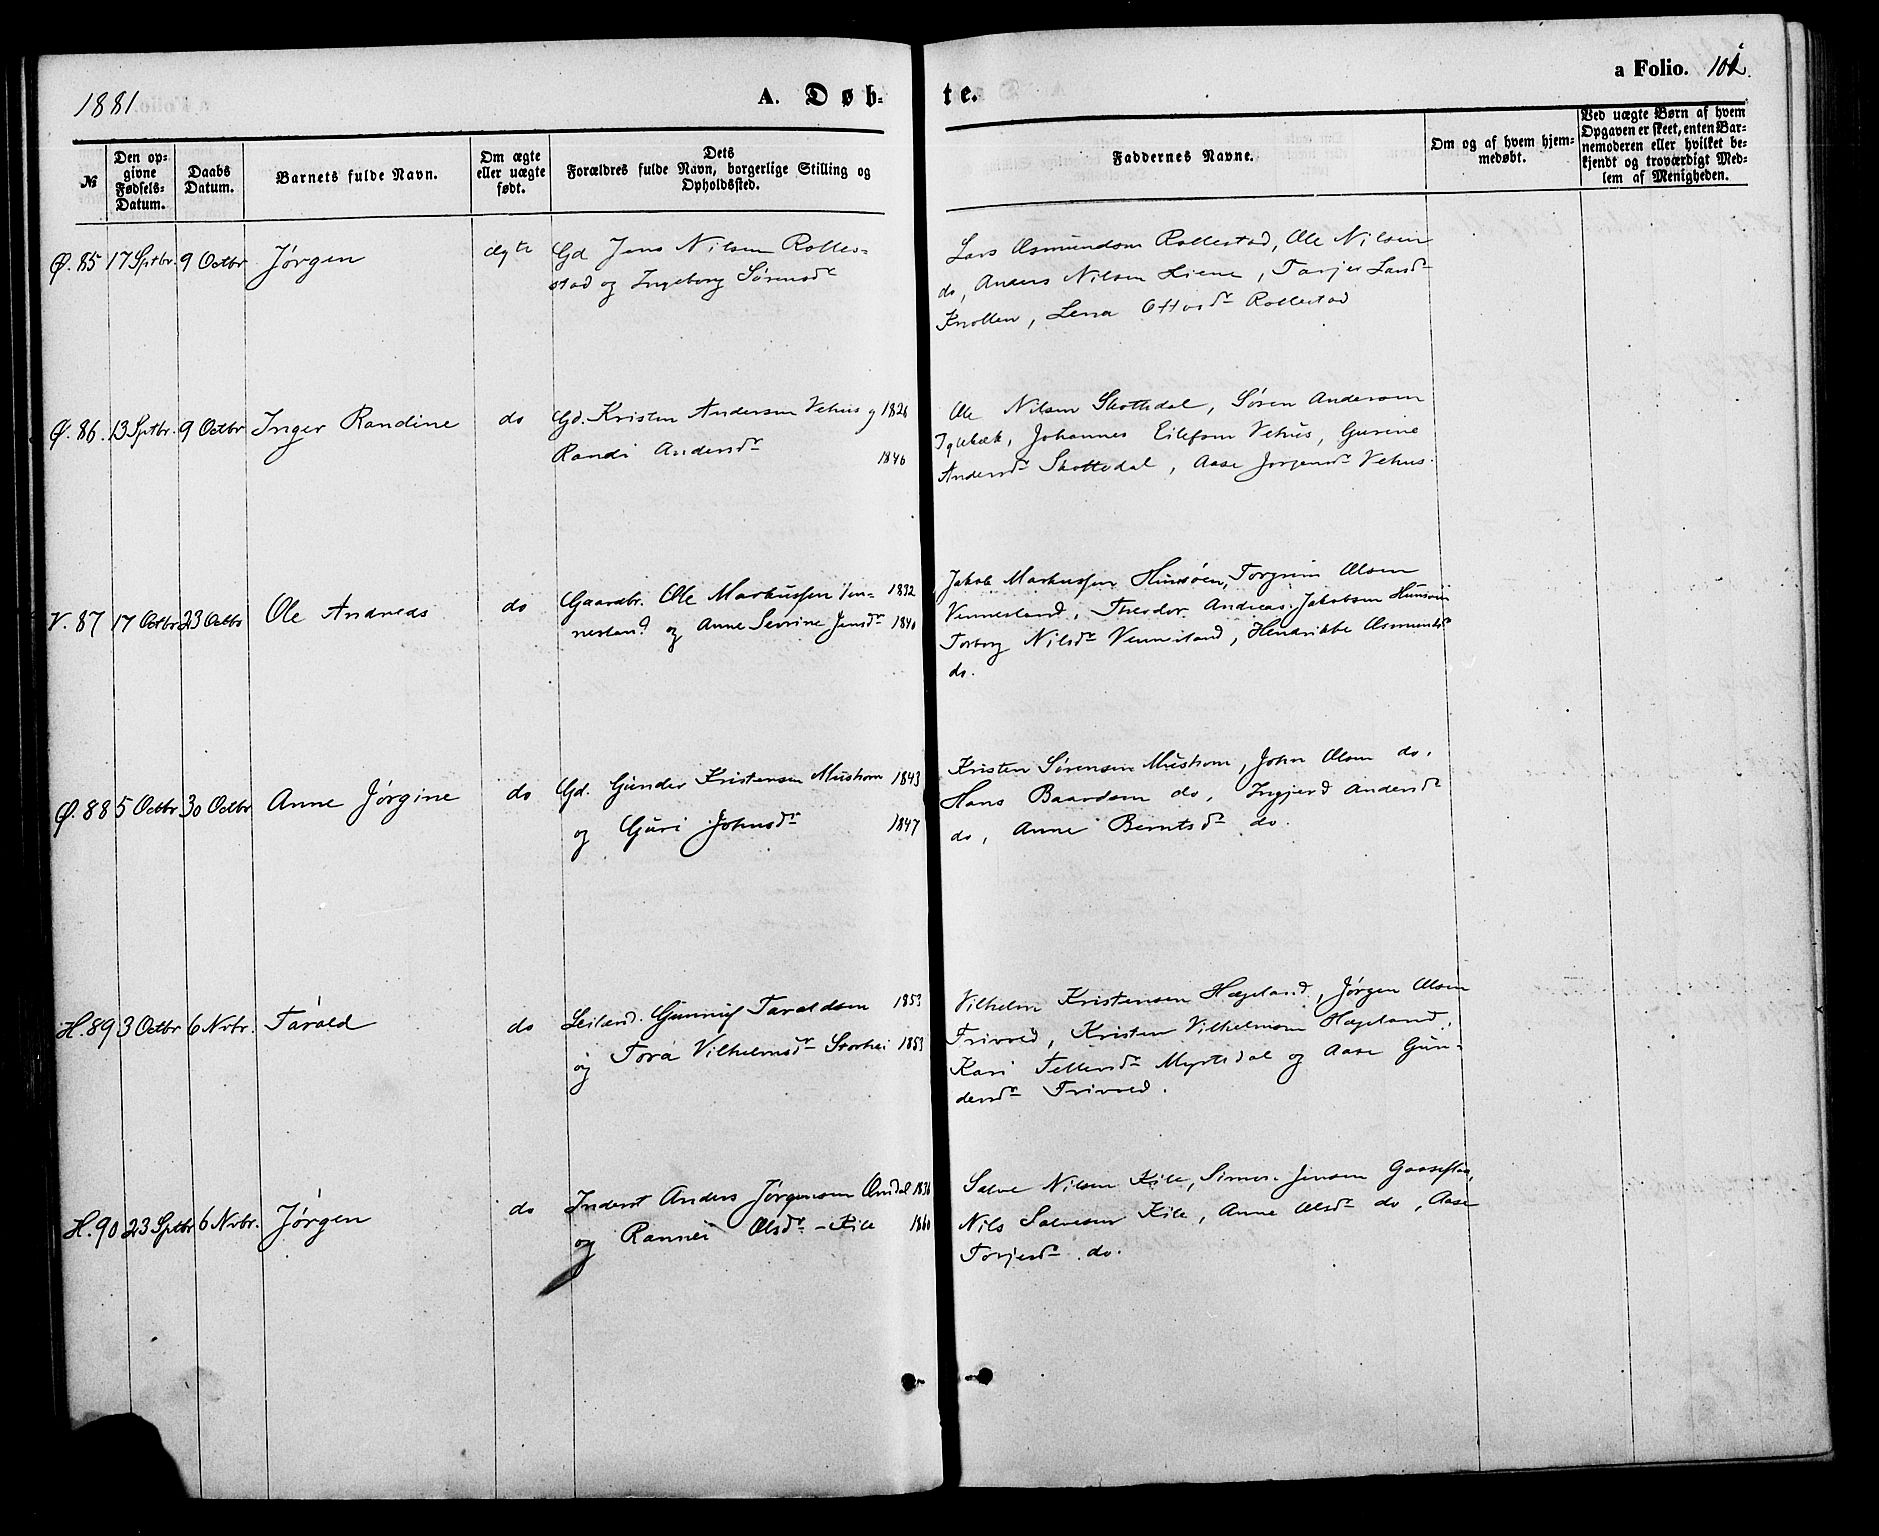 1881.
A. Døb-
te.
a Folio. 102.
№
Den op-
givne
Fødsels-
Datum.
Daabs
Datum.
Barnets fulde Navn.
Om ægte
eller uægte
født.
Dets
Forældres fulde Navn, borgerlige Stilling og
Opholdssted.
Faddernes Navne.
Om og af hvem hjem-
medøbt.
Ved uægte Børn af hvem
Opgaven er skeet, enten Bar-
nemoderen eller hvilket be-
kjendt og troværdigt Med-
lem af Menigheden.
Ø. 85 17 Sptbr. 9 Octbr Jørgen ægte Gd Jens Nilsen Rolles-
stad og Ingeborg Sørensdr
Lars Asmundsen Rollestad, Ole Nilsen
do, Anders Nilsen Liene, Tarjer Larsdr
Knollen, Lena Ottosdr Rollestad
Ø. 86. 13 Sptbr. 9 Octbr Inger Randine do Gd. Kristen Andersen Vehus og 1826
Randi Andersdr 1846
Ole Nilsen Skottedal, Søren Andersen
Iglebæk, Johannes Eilefsen Vehus, Gurine
Andersdr Skottedal, Aase Jørgensdr Vehus.
V. 87 17 Octbr 23 Octbr Ole Andreas do Gaardbr. Ole Markussen Ven- 1832
nesland og Anne Sevrine Jensdr 1840
Jakob Markussen Hunsøen, Torgrim Olsen
Vennesland, Theodor Andreas Jakobsen Hunsøen
Torborg Nilsdr Vennesland, Hendrikke Asmundsdr
do.
Ø. 88 5 Octbr 30 Octbr Anne Jørgine do Gd. Gunder Kristensen Mushom 1843
og Guri Johnsdr 1847
Kristen Sørensen Mushom, John Olsen do.
Hans Baardsen do, Ingjerd Andersdr
do, Anne Berntsdr do.
H. 89 3 Octbr 6 Nvbr. Tarald do Leilænd. Gunnuf Taraldsen 1853
og Tora Vilhelmsdr Storhei 1853
Vilhelm Kristensen Hægeland, Jørgen Olsen
Trivved, Kristen Vilhelmsen Hægeland,
Kari Tellevsdr Myrtsdal og Aase Gun-
dersdr Trivved.
H. 90 23 Sptbr 6 Nvbr. Jørgen do Inderst Anders Jørgensen Omdal 1836
og Rannei Olsdr – Kile 1860
Salve Nilsen Kile, Simon Jensen Gaaseflaa,
Nils Salvesen Kile, Anne Olsdr do, Aase
Torjersdr do.